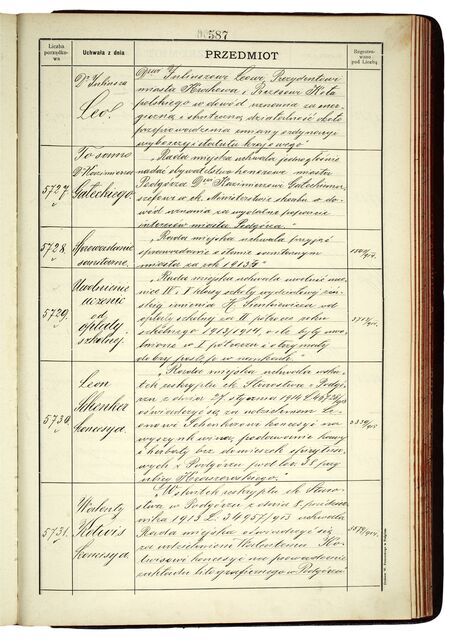 587
Liczba porządkowa
Uchwała z dnia
PRZEDMIOT
Registrowano pod Liczbą
Dr Juliusza
Leo.
Juliuszowi Leowi, Prezydentowi
miasta Krakowa i Prezesowi Koła
polskiego w dowód uznania za
i skuteczną działalność około
przeprowadzenia zmiany ordynacyi
wyborczej i statutu krajowego"
5727.
To samo
Dra Kazimierza
Gałeckiego.
"Rada miejska uchwala jednogłośnie
nadać obywatelstwo honorowe miasta
Podgórza Drowi Kazimierzowi Gałeckiemu,
szefowi w ck. Ministerstwie skarbu w dowód
uznania za wydatne popieranie
interesów miasta Podgórza."
5728.
Sprawozdanie
sanitarne.
"Rada miejska uchwala przyjąć
sprawozdanie o stanie sanitarnym
miasta za rok 1913."
5729.
Uwolnienie
uczenic
od
opłaty
szkolnej.
"Rada miejska uchwala uwolnić
IV i V klasy szkoły wydziałowej żeńskiej
imienia H. Sienkiewicza od
opłaty szkolnej za II. półrocze roku
szkolnego 1913/1914, o ile były uwolnione
w I półroczu i otrzymały
dobry postęp w naukach."
5730.
Leon
Schenker
koncesya.
"Rada miejska uchwala wskutek
reskryptu ck. Starostwa w Podgórzu
z dnia 27 stycznia 1914
oświadczyć się za udzieleniem Leonowi
Schenkerowi koncesyi na
wyszynk wina, podawanie kawy
i herbaty bez domieszek
w Podgórzu pod lor. 38 przy
ulicy
5731.
Walenty
Kotwis
koncesya
"Wskutek reskryptu ck. Starostwa
w Podgórzu z dnia 8 października
1913 L. 34957/913 uchwala
Rada miejska oświadczyć się
za udzieleniem Walentemu Kotwisowi
koncesyi na prowadzenie
zakładu litograficznego w Podgórzu